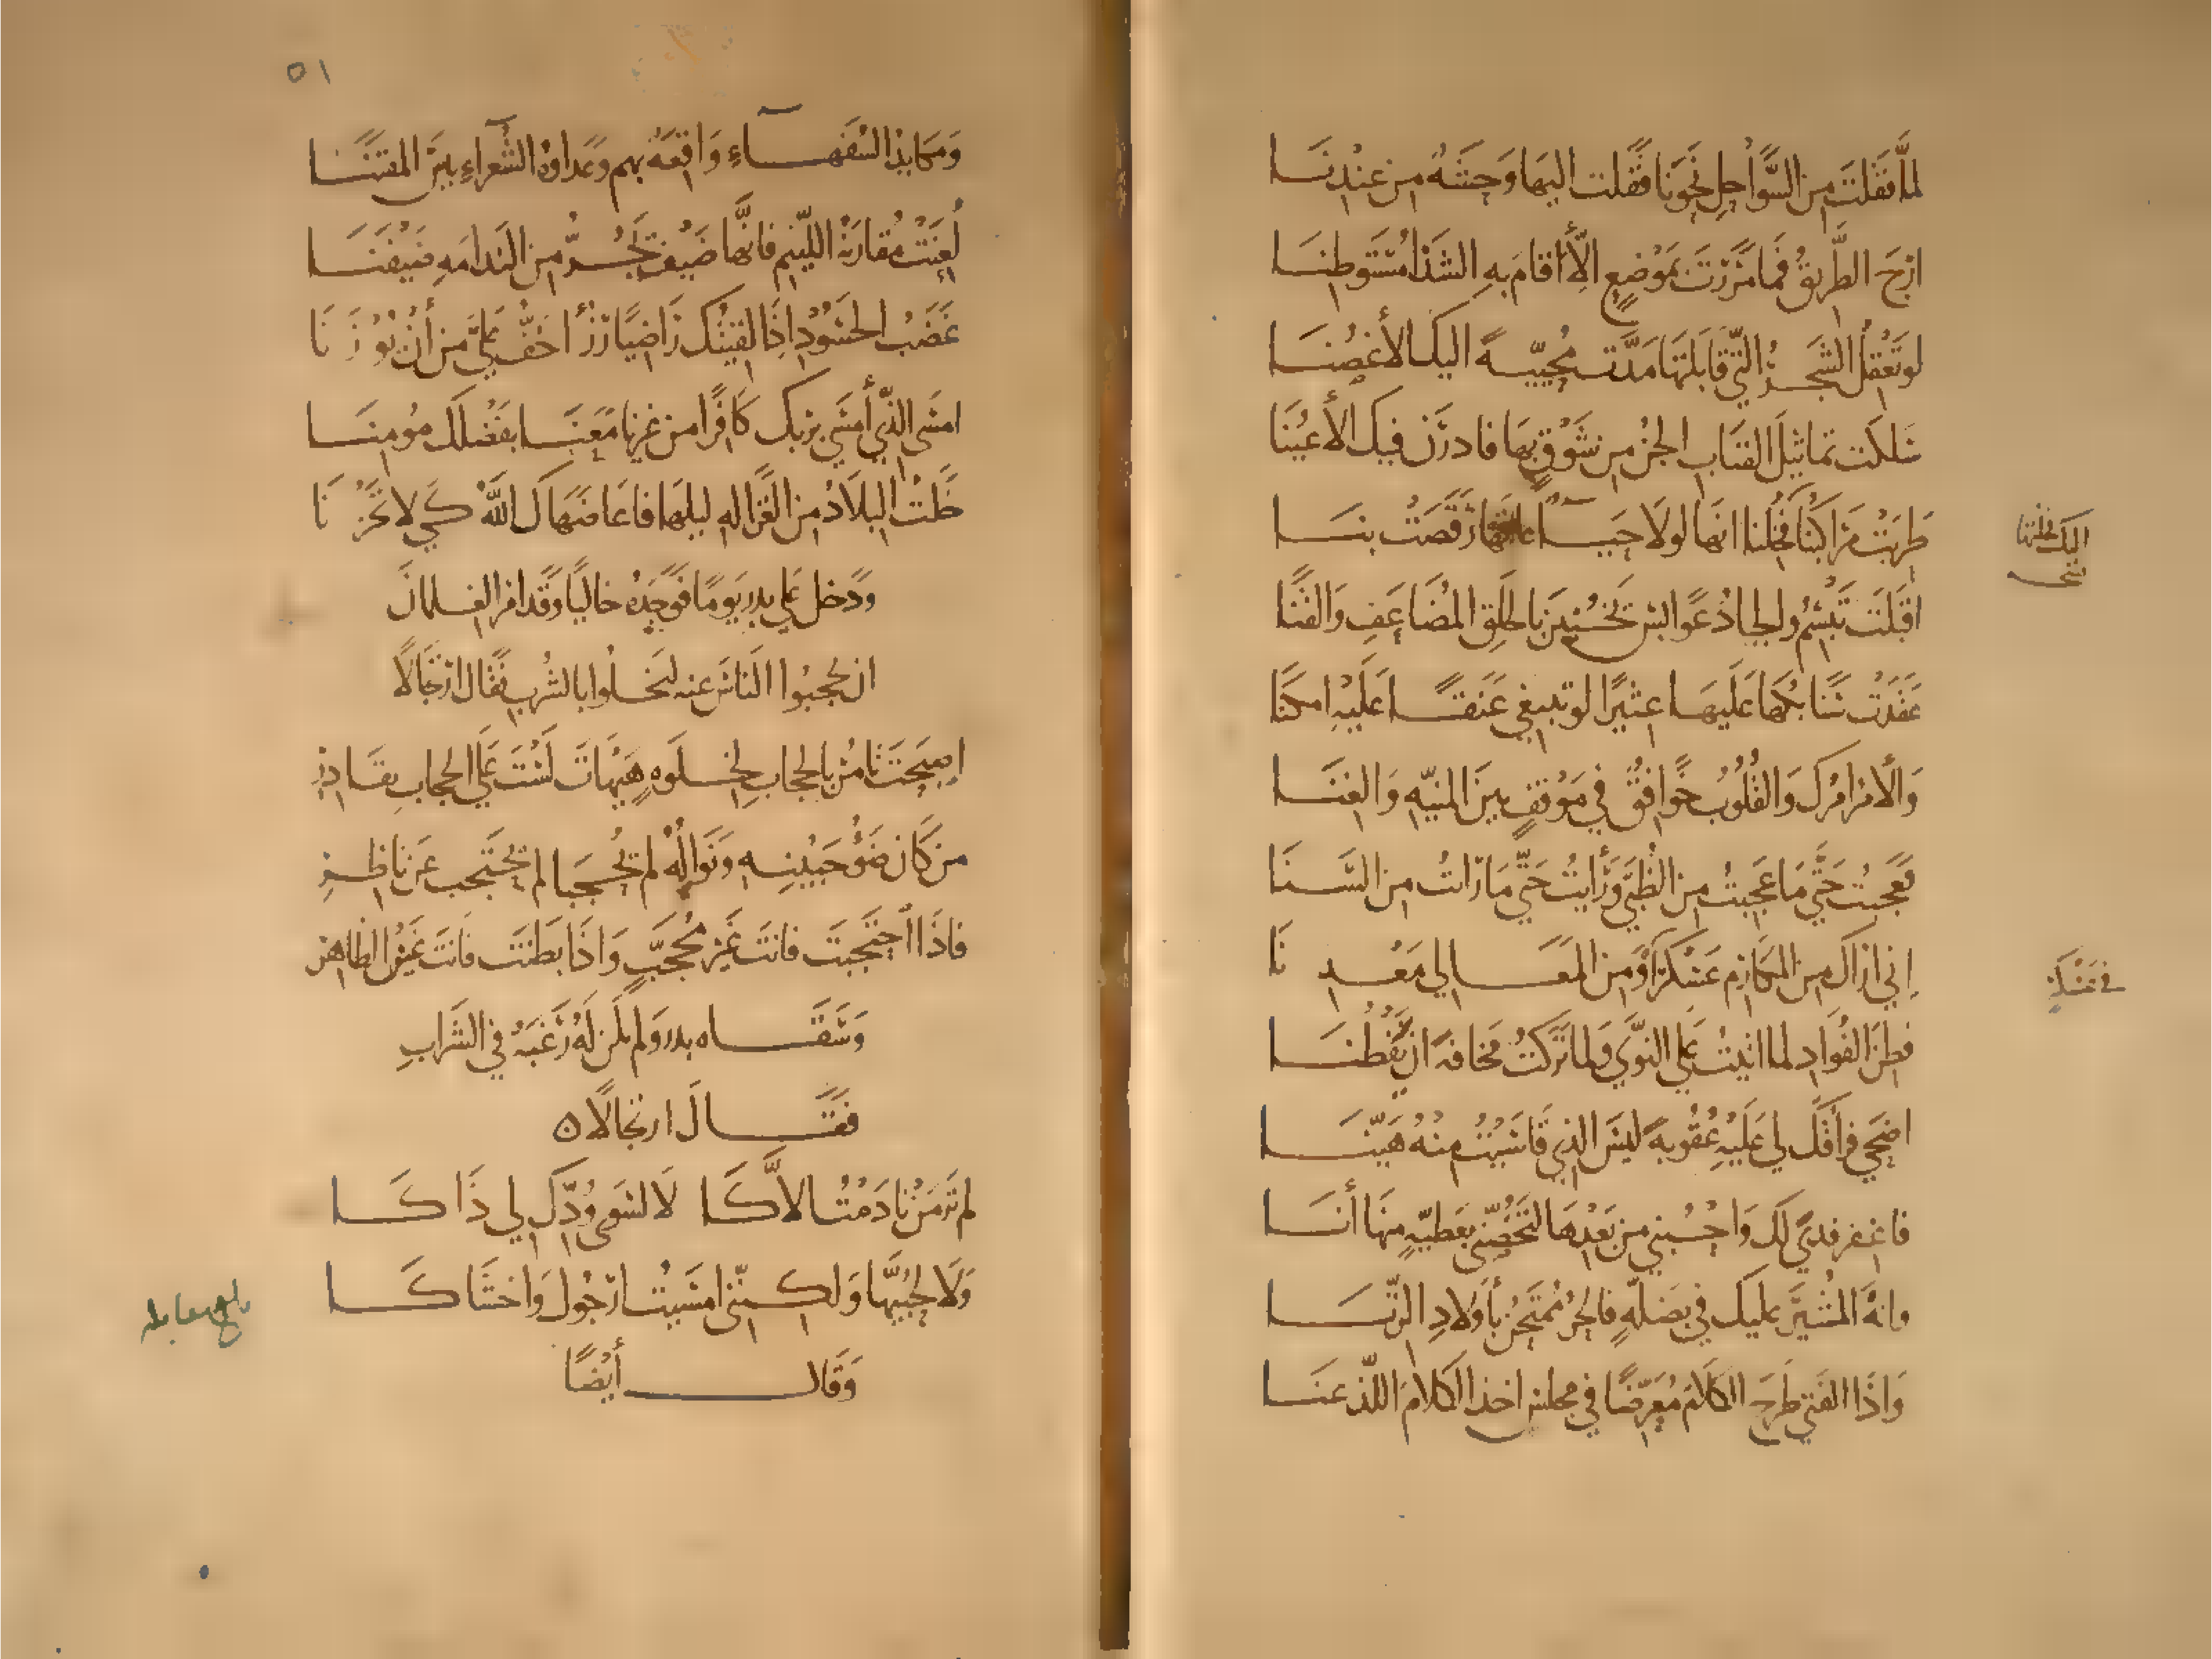 لمّا قفلت من السّواحل نحونا قفلت اليها وحشة من عندنا
ارج الطّريق فما مررت بموضع الّا أقام به الشذا مستوطنا
لو تعقل الشجر التي قابلتها مدّت محيّية اليك الأغصنا
سلكت تماثيل القباب الجن من شوق بها فادرن فيك الأعينا
طربت مراكبنا فخلنا انها لولا حياء عاقها رقصت بنا
اقبلت تبسم والجياد عوابس يخببن بالحلق المضاعف والقنا
عقدت سنابكها عليها عثيرا لو تبتغي عنقا عليه امكنا
والأمر امرك والقلوب خوافق في موقف بين المنيّه والمنا
فعجبت حتّى ما عجبت من الظبى ورأيت حتّى ما رأيت من السنا
إني اراك من المكارم عسكرا ومن المعالي معدنا
فطن الفواد لما اتيت على النوى ولما تركت مخافة ان يفطنا
اضحى فراقك لي عليه عقوبة ليس الذي قاسيت منه هيّنا
فاغفر فدى لك واحبني من بعدها لتخصّني بعطيّه منها أنا
وانه المشير عليك في بضلّة فالحر ممتحن بأولاد الزّنا
واذا الفتى طرح الكلام معرّضا في مجلس اخذ الكلام اللذ عنا
اليك
في عسكر
٥١
ومكايد السفهاء واقعة بهم وعداوة الشعراء بيس المقتنا
لعنت مقارنة اللئيم فانّها ضيف تجر من الندامه ضيفنا
غضب الحسود اذا لقيتك راضيا رزء اخفّ علي من أن يوزنا
امسى الذي أمسى بربك كافرا من غيرنا معنا بفضلك مومنا
خلت البلاد من الغزاله ليلها فاعاضهاك الله كي لا تحزنا
ودخل على بدر يوما فوجده خاليا وقد امر الغلمان
ان يحجبوا الناس عنه ليخلوا بالشرب فقال ارتجالا
اصبحت تامر بالحجاب لخلوه هيهات لست على الحجاب بقادر
من كان ضوء جبينه ونواله لم يحجبا لم يحتجب عن ناظر
فاذا احتجبت فانت غير محجّب واذا بطنت فانت عين الظاهر
وسقاه بدر ولم يكن له رغبه في الشراب
فقال ارتجالا ٥
لم تر من نادمت الّاكا لا لسوى ودّك لي ذاكا
ولا لحبيّها ولكنّني امسيت ارجوك واخشاكا
وقال أيضا
بلغ مقابله